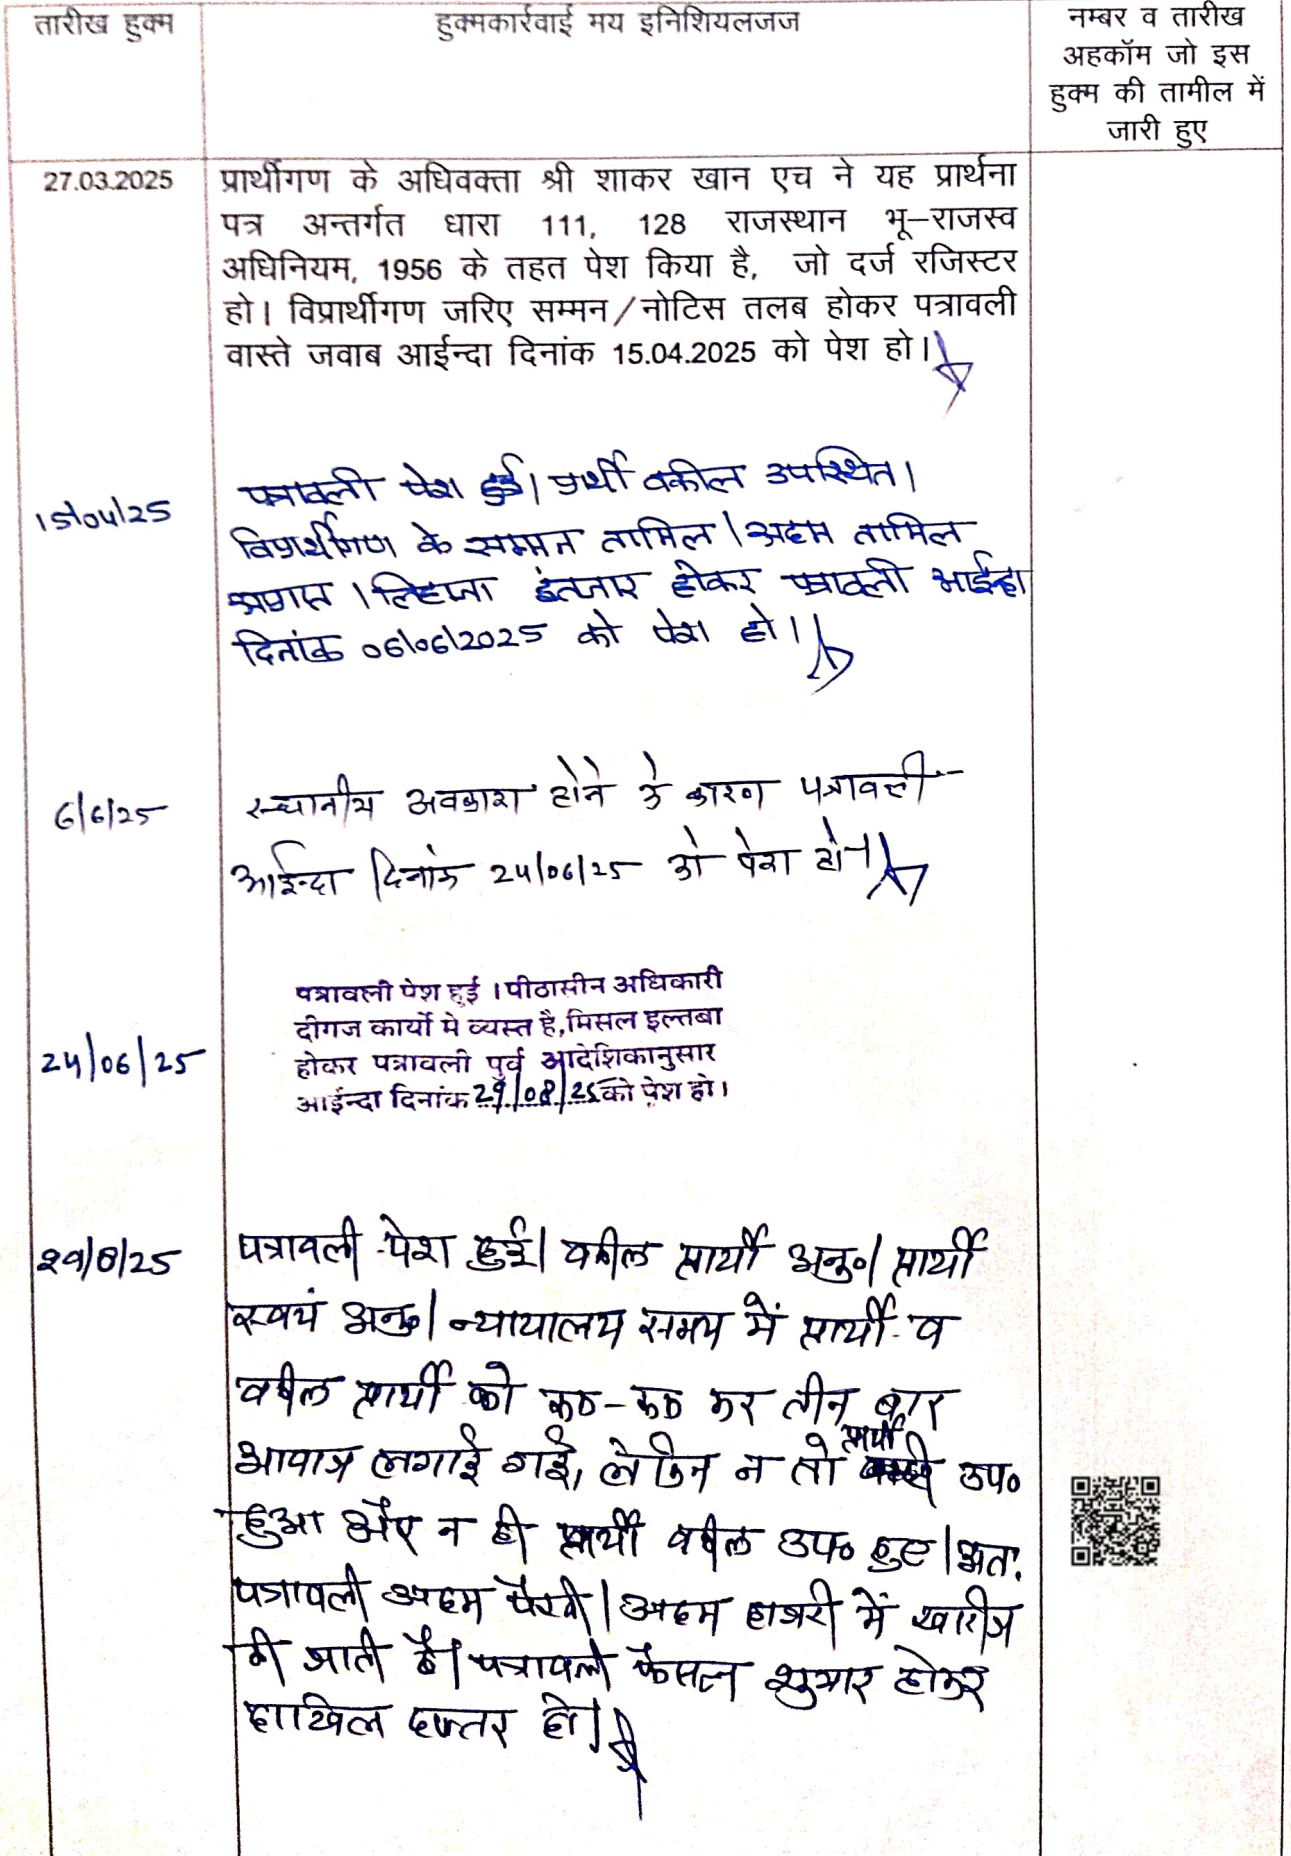 तारीख हुक्म
हुक्मकार्रवाई मय इनिशियलजज
नम्बर व तारीख
अहकॉम जो इस
हुक्म की तामील में
जारी हुए
27.03.2025
प्रार्थीगण के अधिवक्ता श्री शाकर खान एच ने यह प्रार्थना
पत्र अन्तर्गत धारा 111, 128 राजस्थान भू–राजस्व
अधिनियम, 1956 के तहत पेश किया है, जो दर्ज रजिस्टर
हो। विप्रार्थीगण जरिए सम्मन/नोटिस तलब होकर पत्रावली
वास्ते जवाब आईन्दा दिनांक 15.04.2025 को पेश हो।
15/04/25
पत्रावली पेश हुई। प्रार्थी वकील उपस्थित।
विप्रार्थीगण के सम्मन तामिल/अदम तामिल
अप्राप्त। लिहाजा इंतजार होकर पत्रावली आईन्दा
दिनांक 06/06/2025 को पेश हो।
6/6/25
स्थानीय अवकाश होने के कारण पत्रावली
आईन्दा दिनांक 24/06/25 को पेश हो।
24/06/25
पत्रावली पेश हुई । पीठासीन अधिकारी
दीगज कार्यो मे व्यस्त है, मिसल इल्तबा
होकर पत्रावली पुर्व आदेशिकानुसार
आईन्दा दिनांक 29/08/25 को पेश हो।
29/8/25
पत्रावली पेश हुई। वकील प्रार्थी अनु०। प्रार्थी
स्वयं अनु०। न्यायालय समय में प्रार्थी व
वकील प्रार्थी को रूक-रूक कर तीन बार
आवाज लगाई गई, लेकिन न तो प्रार्थी उप०
हुआ और न ही प्रार्थी वकील उप० हुए। अतः
पत्रावली अदम पैरवी/अदम हाजरी में खारीज
की जाती है। पत्रावली फैसल शुमार होकर
दाखिल दफ्तर हो।